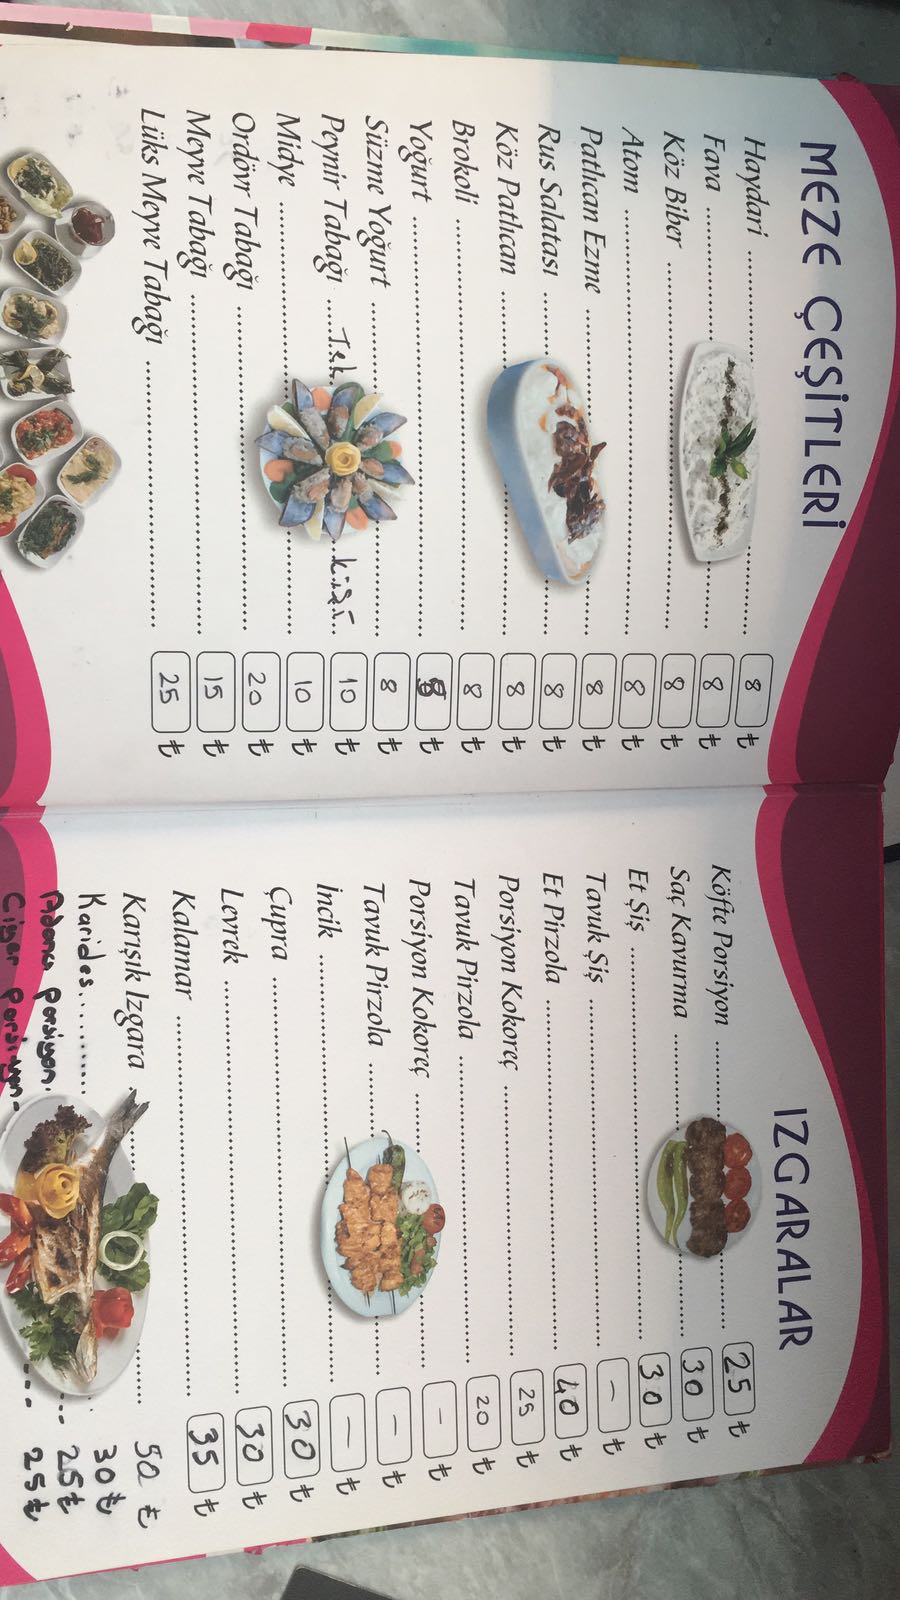 MEZE ÇEŞİTLERİ
Haydari ........ 8 ₺
Fava ........ 8 ₺
Köz Biber ........ 8 ₺
Atom ........ 8 ₺
Patlıcan Ezme ........ 8 ₺
Rus Salatası ........ 8 ₺
Köz Patlıcan ........ 8 ₺
Brokoli ........ 8 ₺
Yoğurt ........ ₺
Süzme Yoğurt ........ 8 ₺
Peynir Tabağı ....Tek........kişi.. 10 ₺
Midye ........ 10 ₺
Ordövr Tabağı ........ 20 ₺
Meyve Tabağı ........ 15 ₺
Lüks Meyve Tabağı ........ 25 ₺
IZGARALAR
Köfte Porsiyon ........ 25 ₺
Saç Kavurma ........ 30 ₺
Et Şiş ........ 30 ₺
Tavuk Şiş ........ — ₺
Et Pirzola ........ 40 ₺
Porsiyon Kokoreç ........ 25 ₺
Tavuk Pirzola ........ 20 ₺
Porsiyon Kokoreç ........ — ₺
Tavuk Pirzola ........ — ₺
İncik ........ — ₺
Çupra ........ 30 ₺
Levrek ........ 30 ₺
Kalamar ........ 35 ₺
Karışık Izgara ........ 50 ₺
Karides........... 30 ₺
Adana porsiyon. --- 25 ₺
Ciger porsiyon- --- 25 ₺